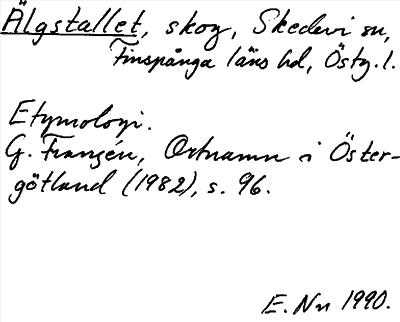 Älgstallet, skog, Skedevi sn,
Finspånga läns hd, Östg. l.
Etymologi.
G. Franzén, Ortnamn i Öster-
götland (1982), s. 96.
E. Nn 1990.